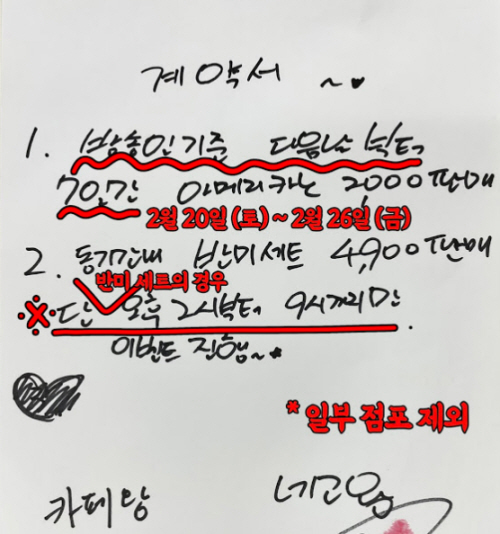 계약서 ~♥
1. 방송일기준 다음날 부터
7일간 아메리카노 2,000 판매
2월 20일 (토) ~ 2월 26일 (금)
2. 동기간내 반미세트 4,900 판매
반미 세트의 경우
※ 단 오후 2시부터 9시까지만.
이벤트 진행~*
* 일부 점포 제외
카페랑 네고왕